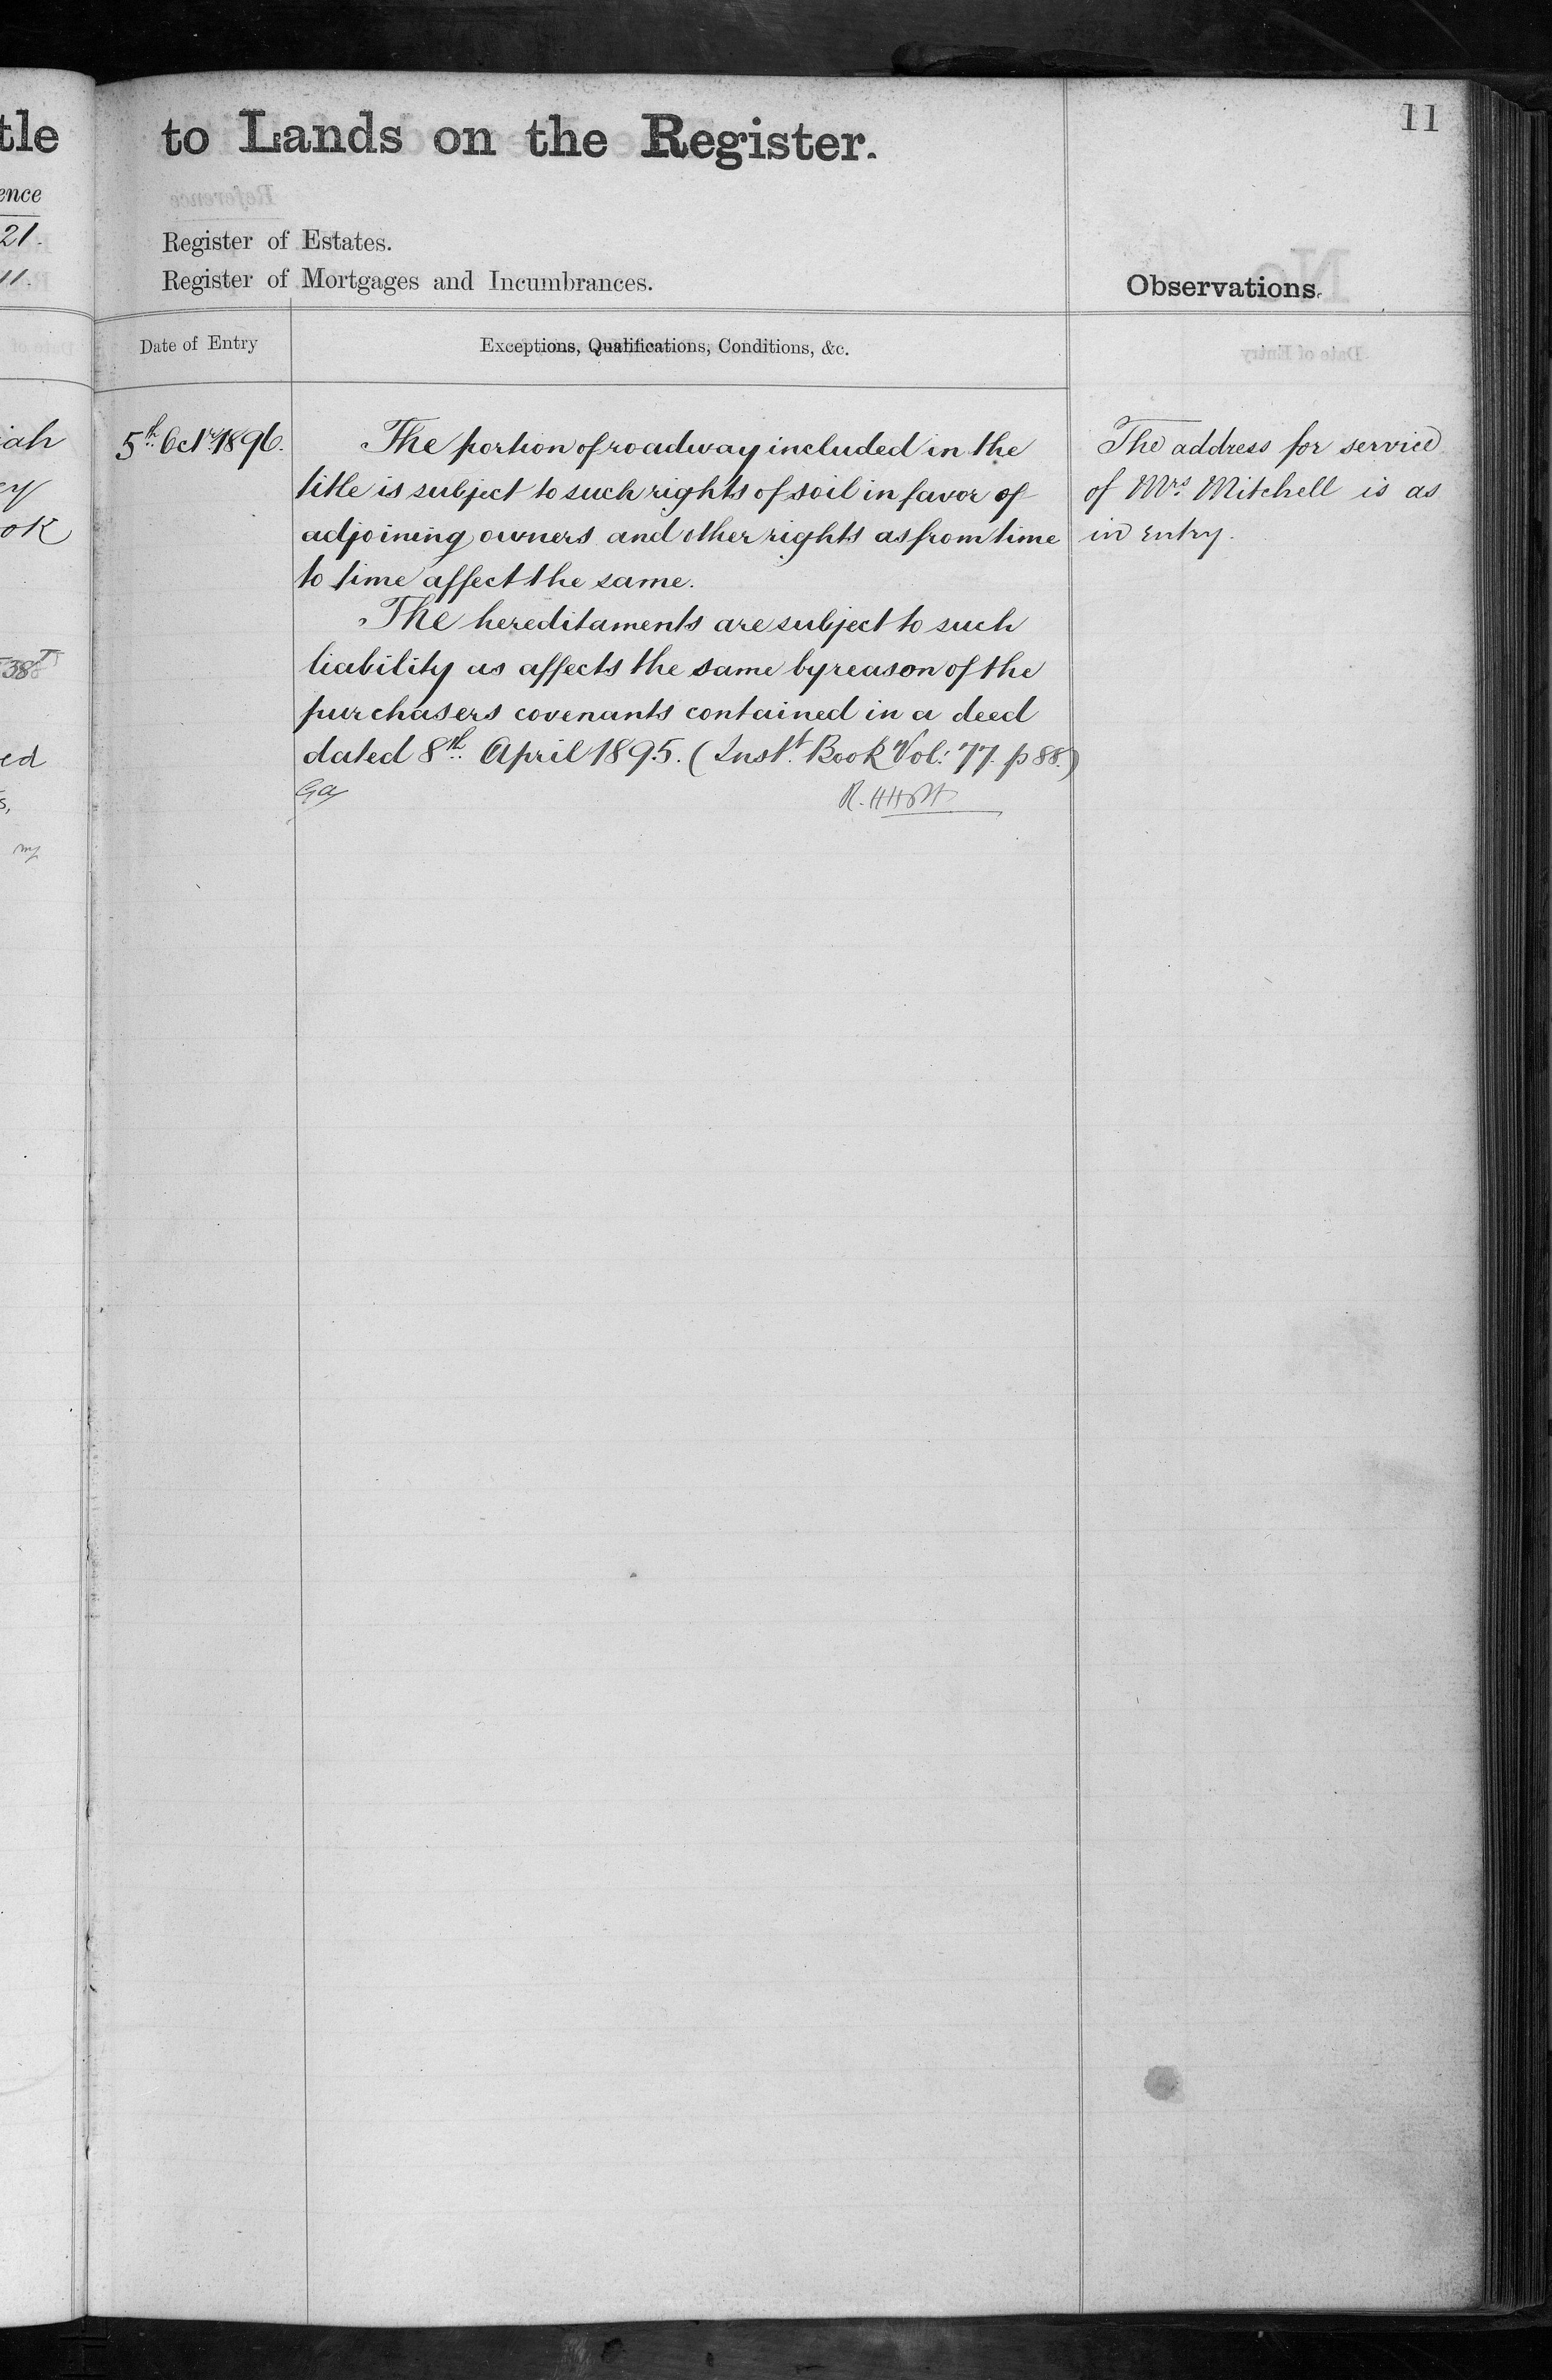 11
tle to Lands on the Register.
ence
21.
11.
Register of Estates.
Register of Mortgages and Incumbrances.
Observations.
Date of Entry
Exceptions, Qualifications, Conditions, &c.
5th Octr 1896.
The portion of roadway included in the
title is subject to such rights of soil in favor of
adjoining owners and other rights as from time
to time affect the same.
The hereditaments are subject to such
liability as affects the same by reason of the
purchasers covenants contained in a deed
dated 8th April 1895. (Instt Book Vol: 77. p 88.)
R. H Holt
The address for service
of Mrs Mitchell is as
in entry.